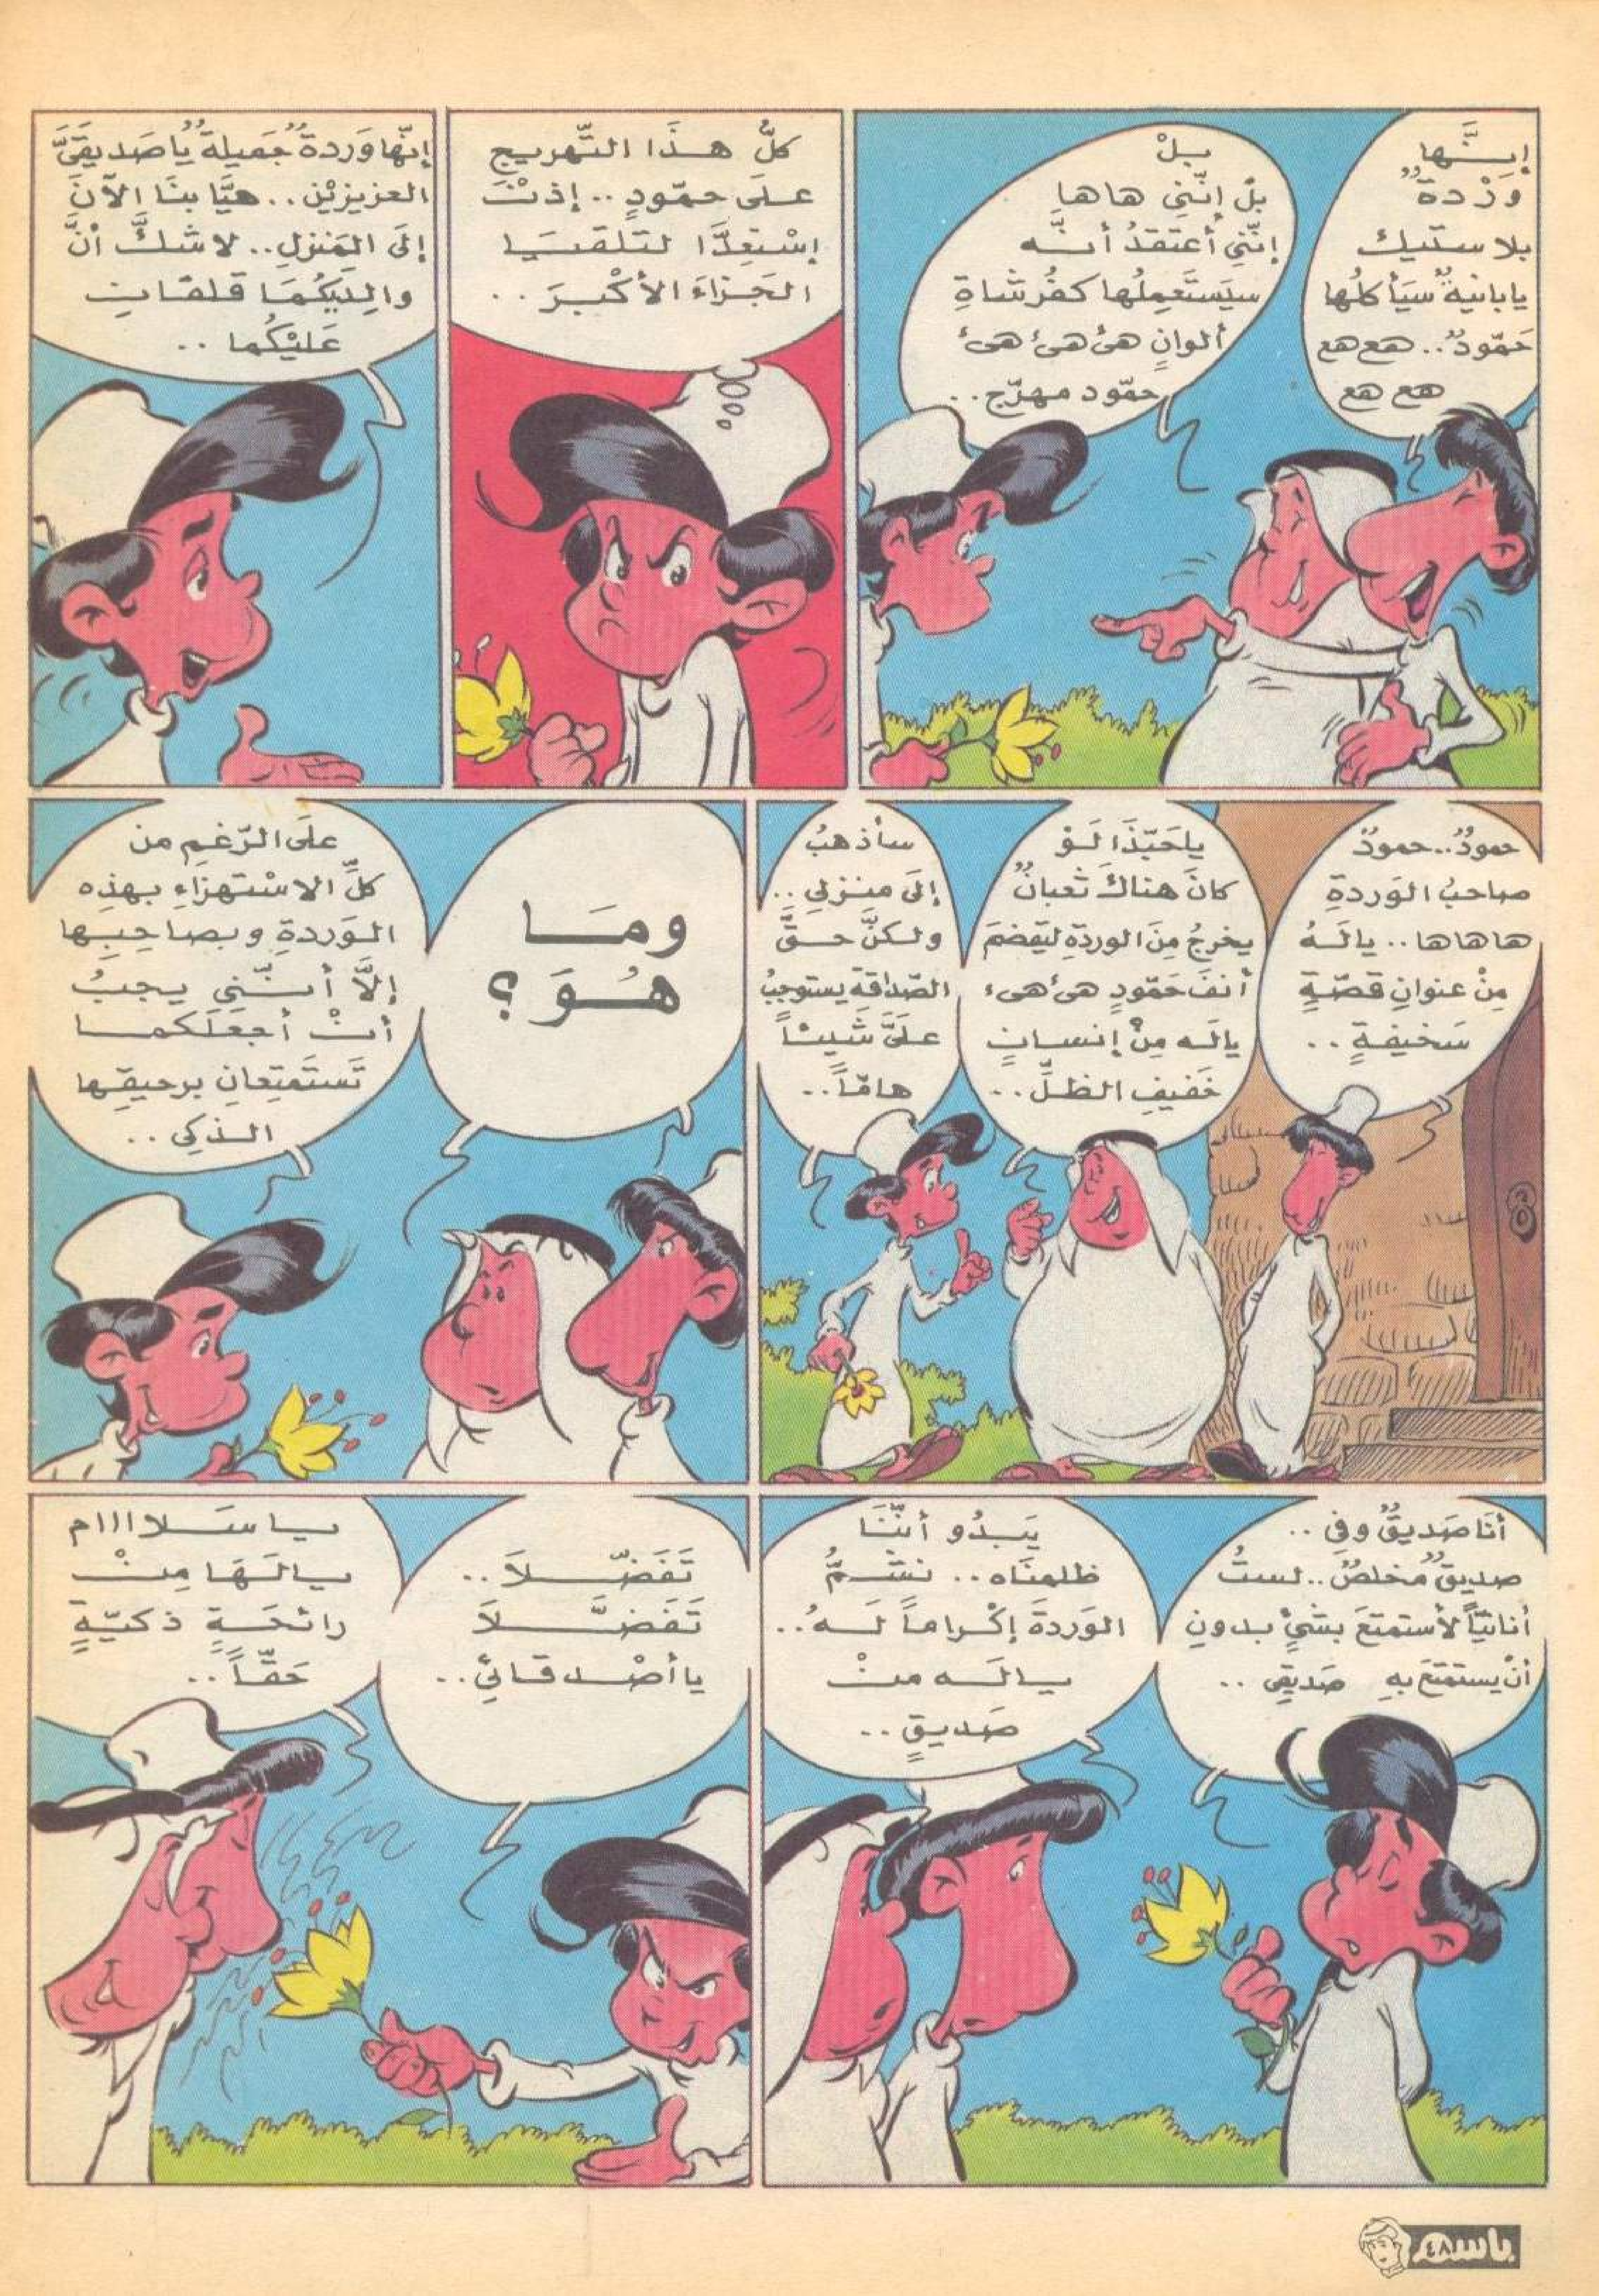 إِنَّها
وَرْدةٌ
بلاستيك
يابانيةٌ سَيَأكلُها
حَمّودٌ.. هع هع
هع هع
بلْ
بلْ إنّني هاها
إنّني أعتقدُ أنَّه
سيَستَعمِلُها كفُرشاةِ
ألوانٍ هئ هئ هئ
حمّود مهرّج..
كلُّ هـذَا التَّهريجِ
علَى حمّودٍ.. إذنْ
إسْتعِدَّا لتَلقيَا
الجَزاءَ الأكْبرَ..
إنّها وَردةٌ جَميلةٌ يا صَديقَيَّ
العزيزيْنِ.. هيَّا بنَا الآنَ
إلَى المَنزلِ.. لا شكَّ أنَّ
والِدَيْكُمَا قلقانِ
عَليْكُما..
حمودٌ.. حمودٌ
صاحبُ الوَردةِ
هاهاها.. يالَـهُ
مِنْ عنوانِ قصّةٍ
سَخيفةٍ..
ياحَبّذَا لَـوْ
كانَ هناكَ ثعبانٌ
يخرجُ مِنَ الوردةِ ليَقضمَ
أنفَ حَمّودٍ هئ هئ
يالَـه مِنْ إنسـانٍ
خَفيفِ الظلِّ..
سأذهبُ
إلَى منزلي..
ولكنَّ حـقَّ
الصّداقةِ يستوجبُ
علَيَّ شَيئاً
هامّاً..
ومَـا
هُـوَ؟
علَى الرّغمِ من
كلِّ الاسْتهزاءِ بهذِه
الـوَردةِ وبصاحِبِها
إلاَّ أنـّني يجبُ
أنْ أجعَلَكمـا
تَستَمتِعانِ برحيقِها
الـذكي..
أنَا صَديقٌ وفي..
صديقٌ مُخلصٌ.. لستُ
أنانيّاً لأستمتعَ بشيْءٍ بـدونِ
أنْ يستمتعَ بهِ صَديقي..
يَبـدُو أنّنَا
ظلمنَاه.. نشـمُّ
الوَردةَ إكْراماً لَـهُ..
يـالَـه منْ
صَديقٍ..
تَفَضّـلاَ..
تَفَضَّـلاَ
يا أصْـدقائي..
يـا سَـلااام
يالَـهَا مِنْ
رائحَـةٍ ذكيّةٍ
حَقّاً..
باسم
٤٨